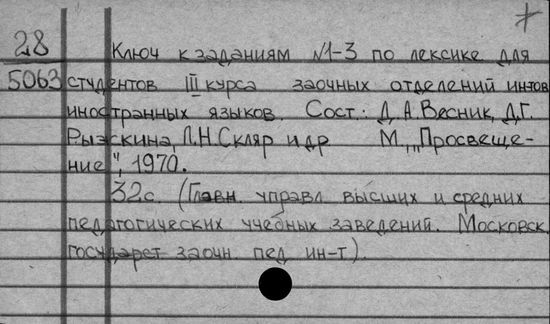 28 Ключ к заданиям №1-3 по лексике для
5063 студентов III курса заочных отделений ин-тов
иностранных языков. Сост: Д.А.Весник, Д.Г.
Рыэскина, Л.Н.Скляр и др М., „Просвеще-
ние", 1970.
32с. (Главн. управл высших и средних
педагогических учебных заведений. Московск.
государст заочн пед ин-т).